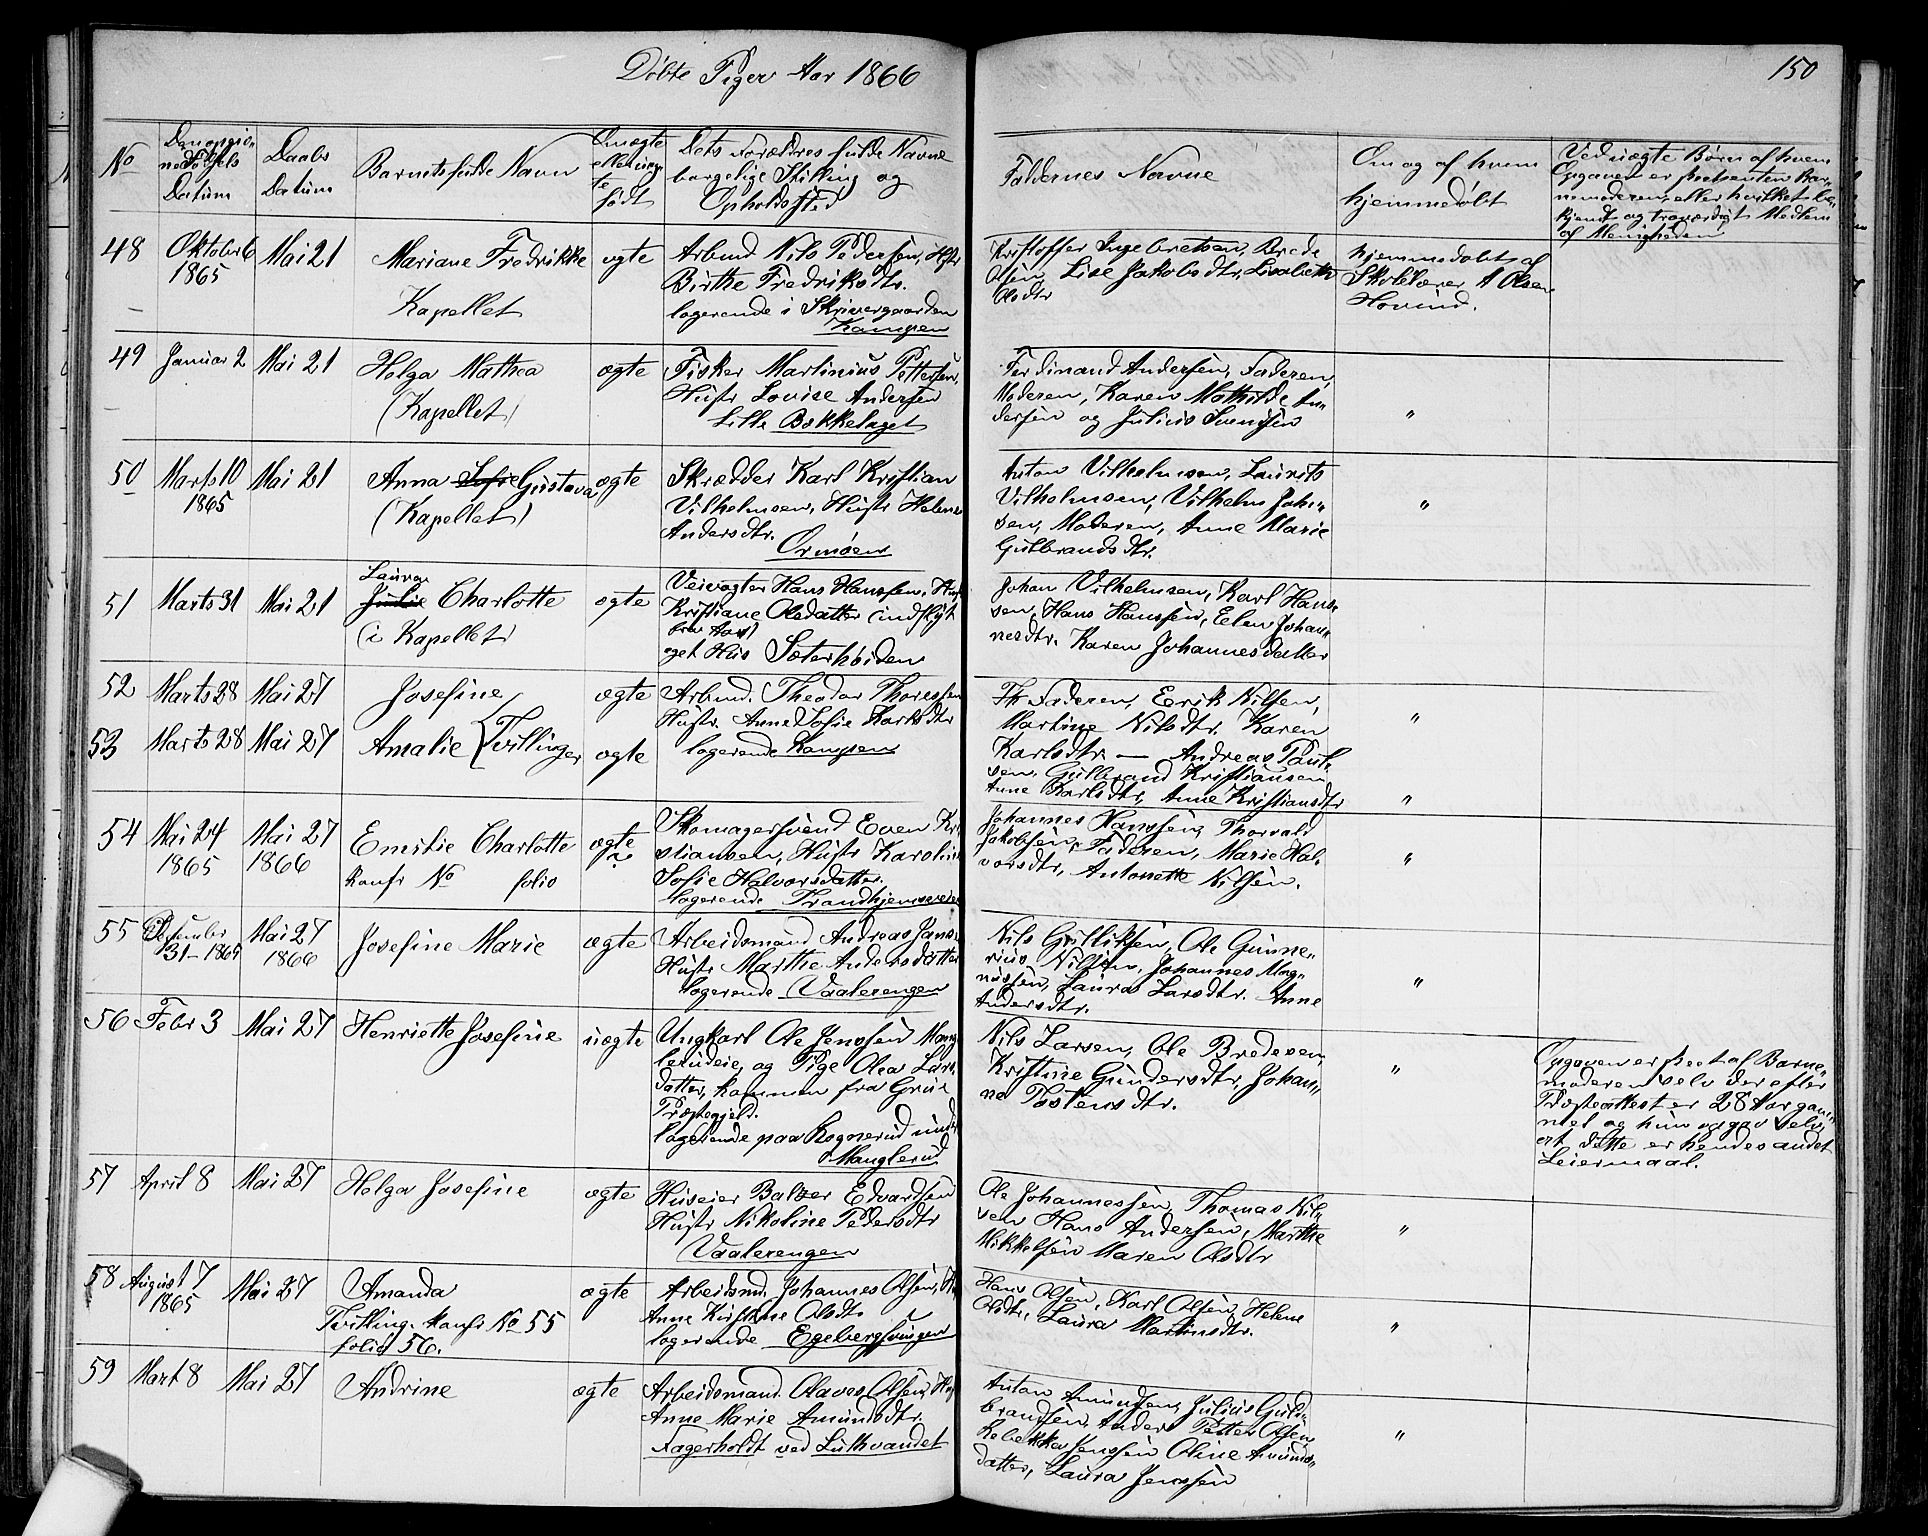 Døbte Piger Aar 1866
150
No
Den opgiv-
ne Fødsels
Datum
Daabs
Datum
Barnets fulde Navn
Om ægte
eller uæg-
te
født
Dets Forældres fulde Navne
borgelige Stilling og
Opholdssted
Faddernes Navne
Om og af hvem
hjemmedøbt
Ved uægte Børn af hvem
Opgaven er skeet enten Bar-
nemoderen, eller hvilket be-
kjendt og troværdigt Medlem
af Menigheden
48
Oktober 6
1865
Mai 21
Mariane Fredrikke
Kapellet
ægte
Arbmd Nils Pedersen, Hstr
Birthe Fredriksdtr.
logerende i Skrivergaarden
Kampen
Kristoffer Ingebretsen, Brede
Olsen, Lise Jakobsdtr, Lisabeth
Olsdtr
hjemmedøbt af
Skolelærer A Olsen
Hovind.
49
Januar 2
Mai 21
Helga Mathea
(Kapellet)
ægte
Fisker Martinius Pettersen,
Hustr Lovise Andersen
Lille Bækkelaget
Ferdinand Andersen, Faderen,
Moderen, Karen Mathilde An-
dersen og Julius Svensen
"
50
Marts 10
1865
Mai 21
Anna Sofie Gustava
(Kapellet)
ægte
Skrædder Karl Kristian
Vilhelmsen, Hustr Helene
Andersdtr.
Ormøen
Anton Vilhelmsen, Laurits
Vilhelmsen, Vilhelm John-
sen, Moderen, Anne Marie
Gulbrandsdtr.
"
51
Marts 31
Mai 21
Laura
Julie Charlotte
(i Kapellet)
ægte
Veivogter Hans Hanssen, Hustr
Kristiane Olsdatter (indflyt
eget Hus Sæterhøiden
Johan Vilhelmsen, Karl Hans-
sen, Hans Hanssen, Elen Johan-
nesdtr. Karen Johannesdatter
52
Marts 28
Mai 27
Josefine
ægte
Arbmd. Theodor Thoressen
Hustr. Anne Sofie Karlsdtr
logerende Kampen
Faderen, Erik Nilsen,
Martine Nilsdtr. Karen
Karlsdtr. — Andreas Paul-
sen, Gulbrand Kristiansen
Anne Karlsdtr, Anne Kristiansdtr
"
53
Marts 28
Mai 27
Amalie { Tvillinger
ægte
"
54
Mai 24
1865
Mai 27
1866
Emilie Charlotte
Konfr No folio
ægte
Skomagersvend Even Kri
stiansen, Hustr Karoline
Sofie Halvorsdatter.
logerende Trondhjemsveien
Johannes Hanssen, Thorvald
Jakobsen, Faderen, Marie Hal-
vorsdtr, Antonette Nilsen.
"
55
Desember
31-1865
Mai 27
1866
Josefine Marie
ægte
Arbeidsmand Andreas Jans
Hustr Marthe Andersdatter
logerende Vaalerengen
Nils Gulliksen, Ole Gunne-
rius Nilsen, Johannes Mag-
nussen, Laura Larsdtr. Anne
Andersdtr.
"
56
Febr 3
Mai 27
Henriette Josefine
uægte
Ungkarl Ole Jenssen Mang
lerudeie, og Pige Olea Lars
datter, kommen fra Grue
Præstegjeld.
logerende paa Rognerud under
Manglerud
Nils Larsen, Ole Bredesen,
Kristine Gundersdtr, Johan-
ne Tostensdtr.
"
Opgaven er skeet af Barne-
moderen selv der efter
Præsteattest er 28 Aar gam-
mel og hun opgav selv,
at dette er hendes andet
Leiermaal.
57
April 8
Mai 27
Helga Josefine
ægte
Huseier Balzer Edvardsen
Hustr Nikoline Pedersdtr
Vaalerengen
Ole Johannessen, Thomas Nil-
sen Hans Andersen, Marthe
Mikkelsen Maren Olsdtr
"
58
August 7
1865
Mai 27
Amanda
Tvilling. konfr No 55
folio 56.
ægte
Arbeidsmd. Johannes Olsen, H
Anne Kirstine Olsdtr
logerende Egebergsvingen
Hans Olsen, Karl Olsen, Helene
Olsdtr, Laura Martinsdtr.
"
59
Mart 8
Mai 27
Andrine
ægte
Arbeidsmand. Olaves Olsen, H
Anne Marie Amundsdtr.
Fagerholdt ved Luthvandet
Anton Amundsen, Julius Gul-
brandsen, Anders Petter Olsen,
Rebekka Jenssen Oline Amunds-
datter, Laura Jenssen
"